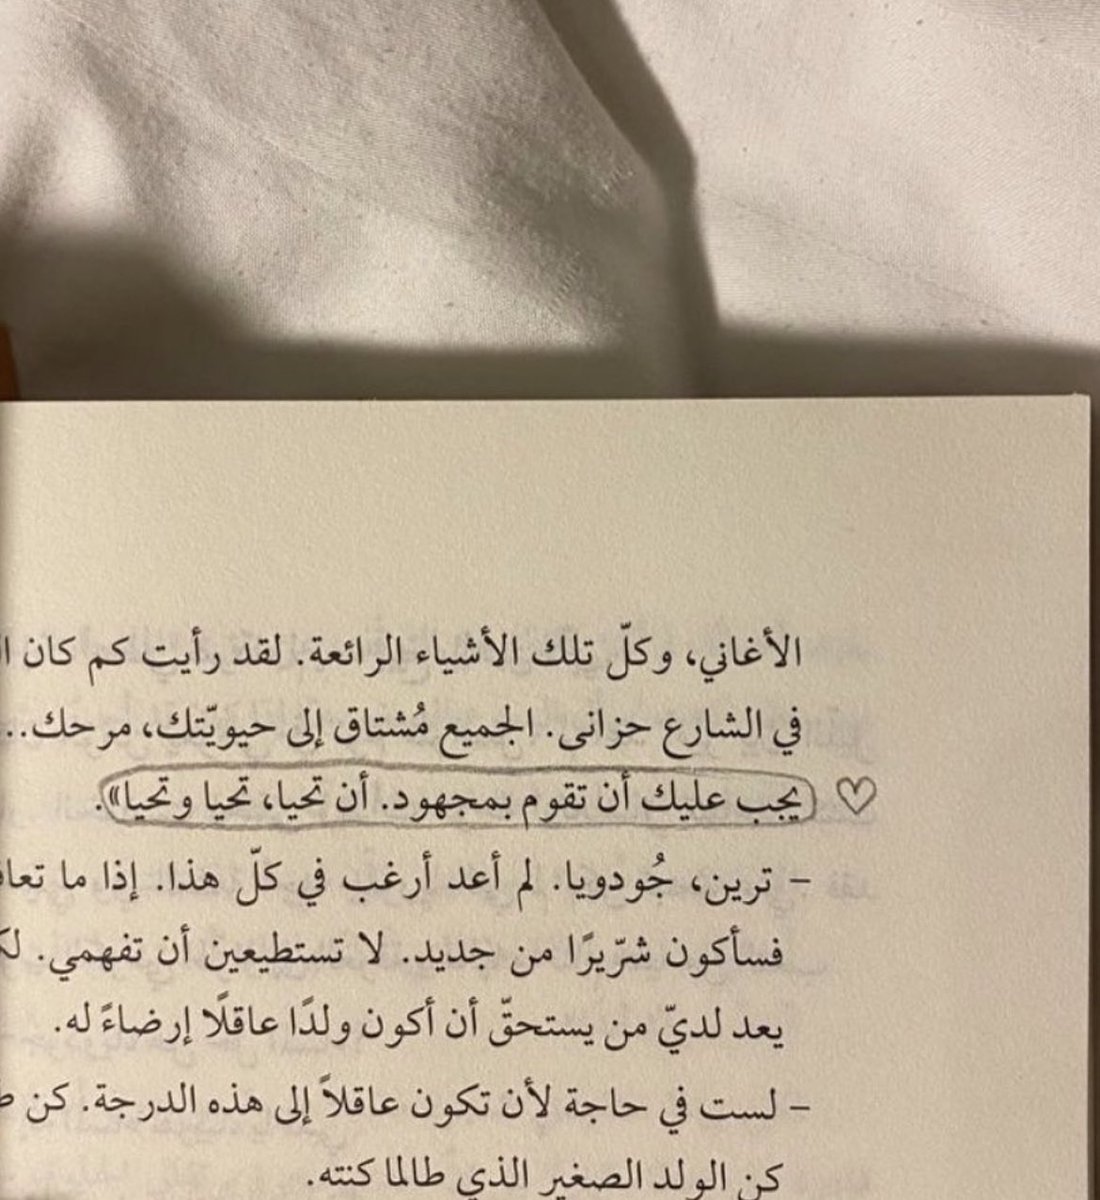 الأغاني، وكلّ تلك الأشياء الرائعة. لقد رأيت كم كان
في الشارع حزانى. الجميع مُشتاق إلى حيويّتك، مرحك..
يجب عليك أن تقوم بمجهود. أن تحيا، تحيا وتحيا».
– ترين، جُودويا. لم أعد أرغب في كلّ هذا. إذا ما
فسأكون شرّيرًا من جديد. لا تستطيعين أن تفهمي.
يعد لديّ من يستحقّ أن أكون ولدًا عاقلًا إرضاءً له.
– لست في حاجة لأن تكون عاقلاً إلى هذه الدرجة. كن
كن الولد الصغير الذي طالما كنته.